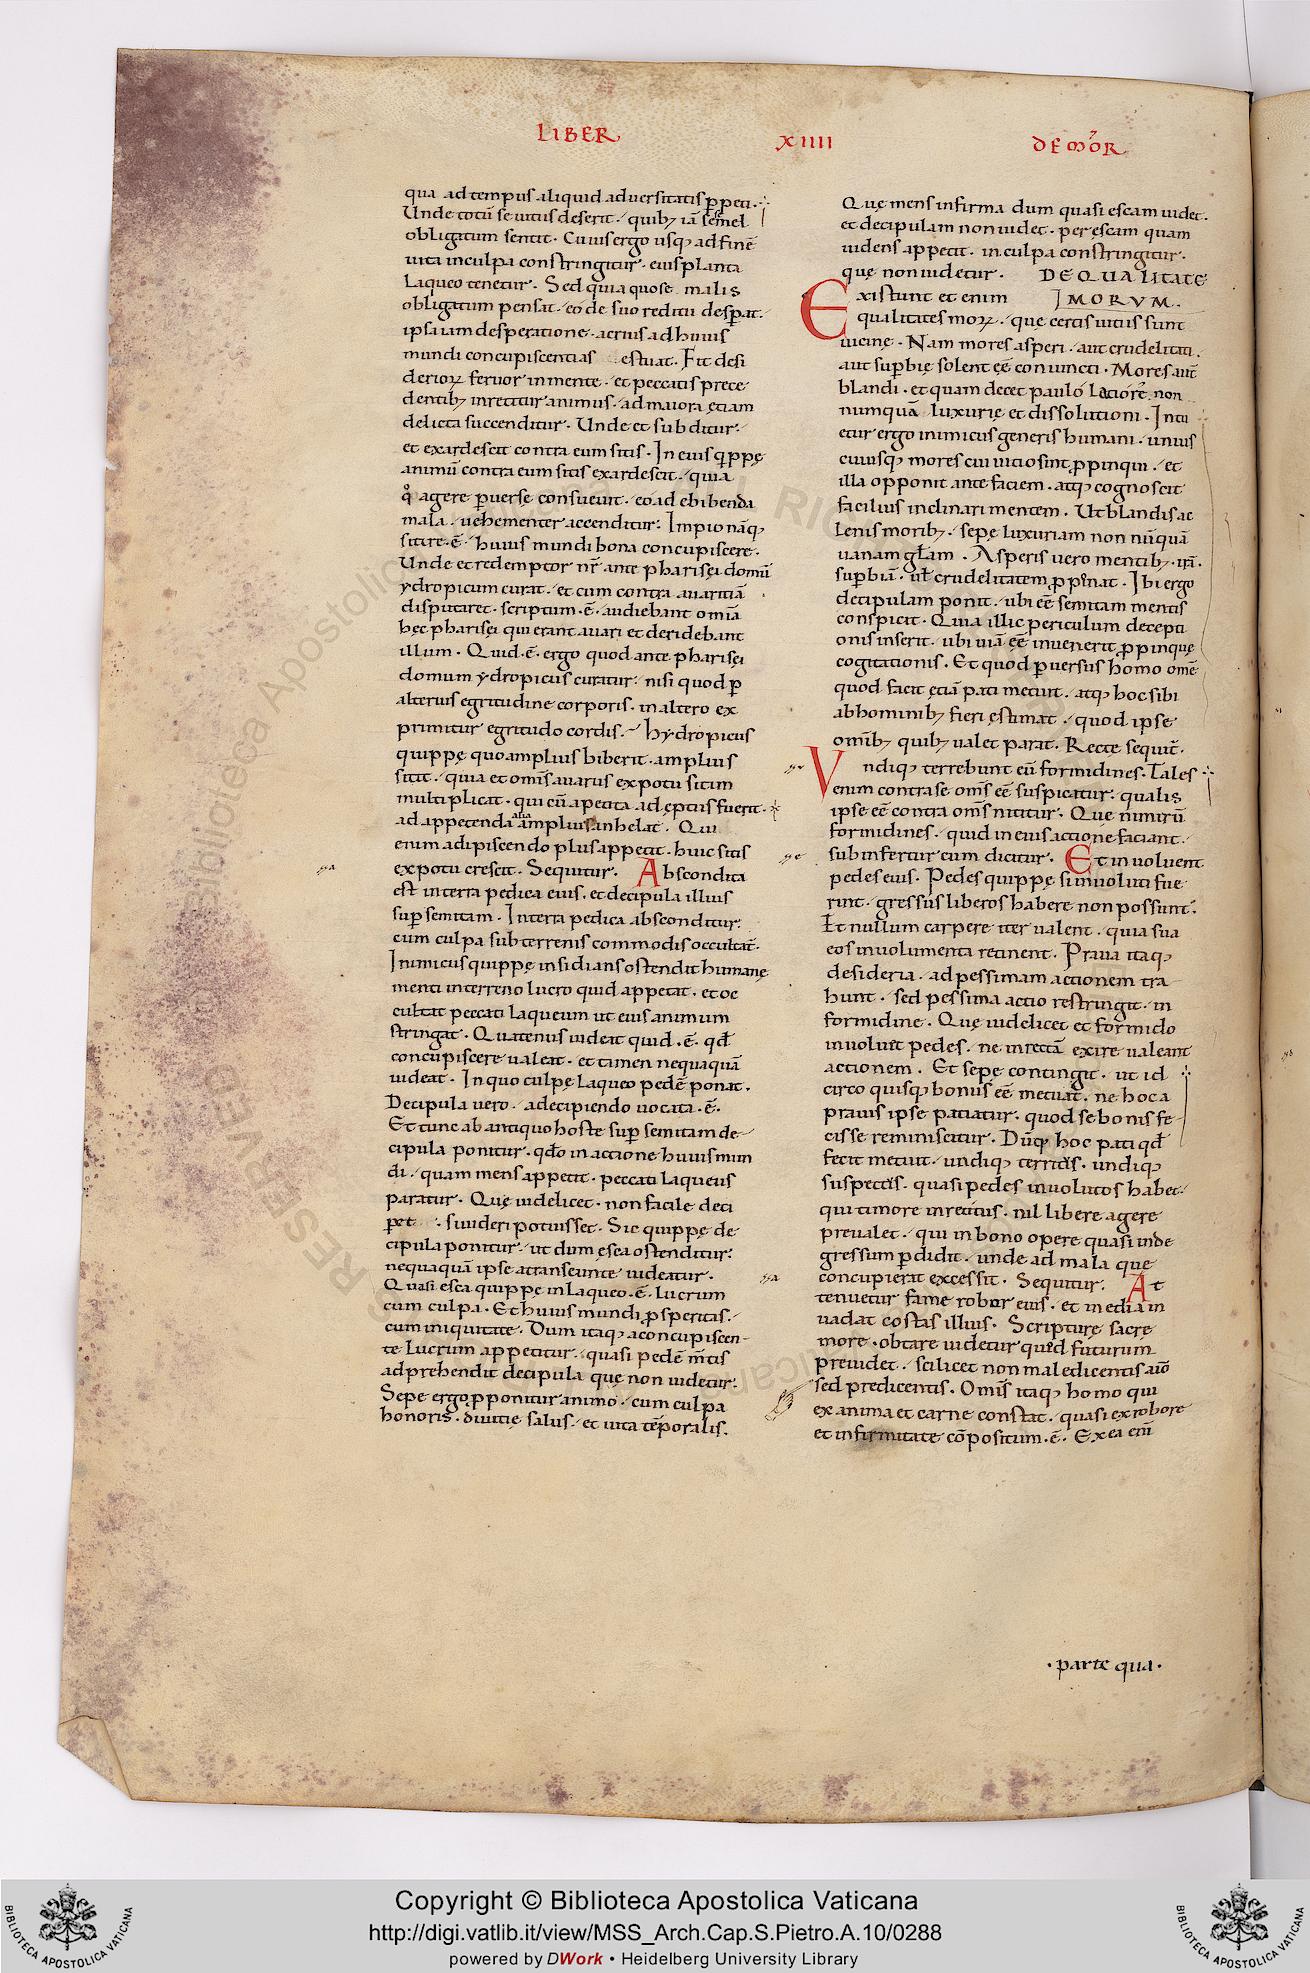 LIBER XIIII DE MOR̄
qua ad tempus aliquid adversitatis ꝑpeti.
Unde totū se uitiis deserit. quibꝫ iā semel
obligatum sentit. Cuius ergo usqꝫ ad finē
uita in culpa constringitur. eius planta
Laqueo tenetur. Sed quia quo se malis
obligatum pensat. eo de suo reditu despat.
ipsa iam desperatione. acrius ad huius
mundi concupiscentias estuat. Fit desi
derioꝝ feruor in mente. et peccatis prece
dentibꝫ inretitur animus. ad maiora ętiam
delicta succenditur. Unde et subditur.
et exardescit contra eum sitis. In eius q̇ppę
animū contra eum sitis exardescit. quia
qͦ agere puerse consueuit. eo ad ebibenda
mala. uehementer accenditur. Impio nāqꝫ
sitire.ē. huius mundi bona concupiscere.
Unde et redemptor nr̄ ante pharisei domū
ydropicum curat. et cum contra auaritiā
disputaret. scriptum.ē. audiebant omīa
hęc pharisęi qui erant auari et deridebant
illum. Quid.ē. ergo quod ante pharisęi
domum ydropicus curatur. nisi quod p̱
alterius egritudine corporis. in altero ex
primitur egritudo cordis. hydropicus
quippę quo amplius biberit. amplius
sitit. quia et omīs auarus ex potu sitim
multiplicat. qui cū apetita adęptus fuerit.
ad appetenda alia amplius anhelat̄. Qui
enim adipiscendo plus appetit. huic sitis
ex potu crescit. Sequitur. Abscondita
est in terra pedica eius. et decipula illius
sup semitam. In terra pedica absconditur.
cum culpa sub terrenis commodis occultat̄.
Inimicus quippę insidians ostendit humanę
menti in terreno lucro quid appetat. et oc
cultat peccati laqueum ut eius animum
stringat. Quatenus uideat quid.ē. qđ
concupiscere ualeat. et tamen nequaquā
uideat. In quo culpę laqueo pedē ponat.
Decipula uero. a decipiendo uocata.ē.
Et tunc ab antiquo hoste sup semitam de-
cipula ponitur. qđo in actione huius mun
di. quam mens appetit. peccati laqueus
paratur. Quę uidelicet. non facile deci
pet. si uideri potuisset. Sic quippę de
cipula ponitur. ut dum ęsca ostenditur.
nequaquā ipse a transeunte uideatur.
Quasi esca quippę in laqueo.ē. lucrum
cum culpa. Et huius mundi ꝓsperitas.
cum iniquitate. Dum itaqꝫ a concupiscen-
te Lucrum appetitur. quasi pedē m̄tis
adprehendit decipula quę non uidetur.
Sępe ergo ꝓponitur animo. cum culpa
honoris. diuitię salus. et uita tēporalis.
Quę mens infirma dum quasi escam uidet.
et decipulam non uidet. per ęscam quam
uidens appetit. in culpa constringitur.
quę non uidetur. DE QUALITATE
Existunt et enim MORUM.
qualitates moꝝ. quę certis uitiis sunt
uicine. Nam mores asperi. aut crudelitati.
aut supbię solent eē coniuncti. Mores aut̄
blandi. et quam decet paulo Lętiores non
numquā luxurię et dissolutioni. Intu
etur ergo inimicus generis humani. unius
cuiusqꝫ mores cui uitio sint ꝓpinqui. et
illa opponit ante faciem. atqꝫ cognoscit
facilius inclinari mentem. Ut blandis ac
Lenis moribꝫ. sępe luxuriam non nūquā
uanam gl̄am. Asperis uero mentibꝫ. irā.
supbiā. ut̄ crudelitatem ꝓpinat. Ibi ergo
decipulam ponit. ubi eē semitam mentis
conspicit. Quia illic periculum decepti
onis inserit. ubi uiā eē inuenerit ꝓpinquę
cogitationis. Et quod puersus homo omē
quod facit ętiā pati metuit. atqꝫ hoc sibi
ab hominibꝫ fieri ęstimat. quod ipse
omībꝫ quibꝫ ualet parat. Recte sequit̄.
Vndiqꝫ terrebunt eū formidines. Tales
enim contra se omīs eē suspicatur. qualis
ipse eē contra omīs nititur. Quę nimirū
formidines. quid in eius actione faciant.
sub infertur cum dicitur. Et inuoluent
pedes eius. Pedes quippę si inuoluti fue
rint. gressus liberos habere non possunt.
Et nullum carpere iter ualent. quia sua
eos inuolumenta retinent. Praua itaqꝫ
desideria. ad pessimam actionem tra
hunt. sed pessima actio restringit. in
formidine. Quę uidelicet et formido
inuoluit pedes. ne in rectā exire ualeant
actionem. Et sępe contingit. ut id
circo quisqꝫ bonus eē metuat. ne hoc a
prauis ipse patiatur. quod se bonis fe-
cisse reminiscitur. Dūqꝫ hoc pati qđ
fecit metuit. undiqꝫ territus. undiqꝫ
suspectus. quasi pedes inuolutos habet.
qui timore inretitus. nil libere agere
preualet. qui in bono opere quasi inde
gressum pdidit. unde ad mala quę
concupierat excessit. Sequitur. At
tenuetur fame robur eius. et inedia in
uadat costas illius. Scripturę sacrę
more. obtare uidetur quod futurum
preuidet. scilicet non maledicentis aiō
sed predicentis. Omīs itaqꝫ homo qui
ex anima et carne constat. quasi ex robore
et infirmitate cōpositum.ē. Ex ea enī
· parte qua ·
Copyright © Biblioteca Apostolica Vaticana
http://digi.vatlib.it/view/MSS_Arch.Cap.S.Pietro.A.10/0288
powered by DWork • Heidelberg University Library
BIBLIOTECA APOSTOLICA VATICANA
BIBLIOTECA APOSTOLICA VATICANA